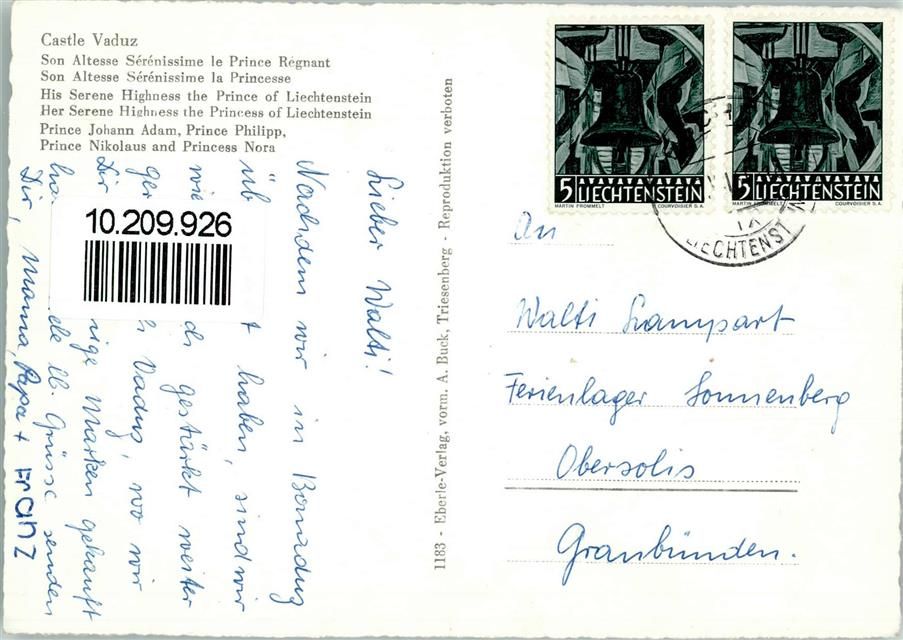 Castle Vaduz
Son Altesse Sérénissime le Prince Régnant
Son Altesse Sérénissime la Princesse
His Serene Highness the Prince of Liechtenstein
Her Serene Highness the Princess of Liechtenstein
Prince Johann Adam, Prince Philipp,
Prince Nikolaus and Princess Nora
10.209.926
Lieber Walti!
Nachdem wir in Bonaduz
üb t haben, sind wir
wie gestärkt weiter
ge h Vaduz, wo wir
Dir ige Marken gekauft
ha lb. Grüsse senden
Dir, Mama, Papa + Franz
1183 - Eberle-Verlag, vorm. A. Buck, Triesenberg - Reproduktion verboten
5 LIECHTENSTEIN
MARTIN FROMMELT COURVOISIER S.A.
5 LIECHTENSTEIN
MARTIN FROMMELT COURVOISIER S.A.
LIECHTENST
An
Walti Kampart
Ferienlager Sonnenberg
Obersolis
Graubünden.